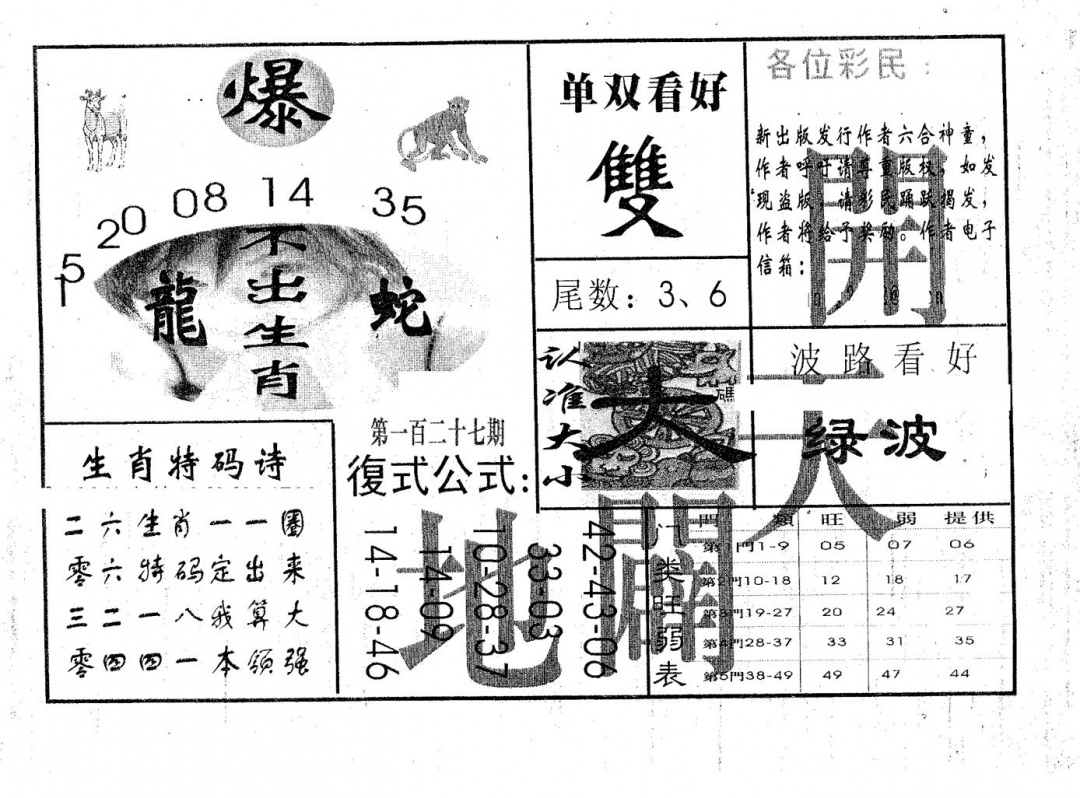 爆
15 20 08 14 35
不出生肖
龍
蛇
单双看好
雙
尾数：3、6
各位彩民：
新出版发行作者六合神童，
作者呼吁请尊重版权，如发
现盗版，请彩民踊跃揭发，
作者将给予奖励。作者电子
信箱：
開天闢地
认准大小
大
波路看好
绿波
第一百二十七期
復式公式：
14-18-46
14-09
10-28-37
33-03
42-43-06
生肖特码诗
二六生肖一一圈
零六特码定出来
三二一八我算大
零四四一本领强
门类旺弱表
門類 旺 弱 提供
第1門1-9 05 07 06
第2門10-18 12 18 17
第3門19-27 20 24 27
第4門28-37 33 31 35
第5門38-49 49 47 44